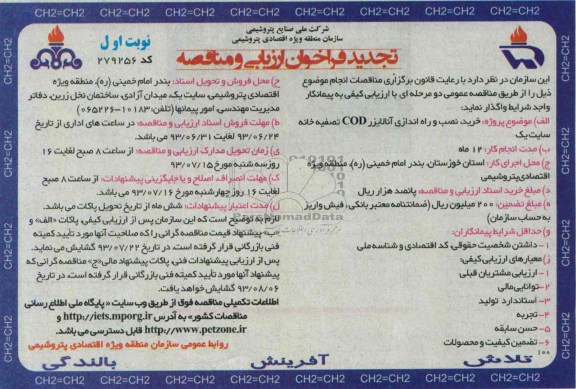 شرکت ملی صنایع پتروشیمی
سازمان منطقه ویژه اقتصادی پتروشیمی
نوبت اول
کد ۲۷۹۲۵۶
تجدید فراخوان ارزیابی و مناقصه
این سازمان در نظر دارد با رعایت قانون برگزاری مناقصات انجام موضوع
ذیل را از طریق مناقصه عمومی دو مرحله ای با ارزیابی کیفی به پیمانکار
واجد شرایط واگذار نماید:
الف) موضوع پروژه: خرید، نصب و راه اندازی آنالایزر COD تصفیه خانه
سایت یک
ب) مدت انجام کار: ۱۲ ماه
ج) محل اجرای کار: استان خوزستان، بندر امام خمینی (ره)، منطقه ویژه
اقتصادی پتروشیمی
د) مبلغ خرید اسناد ارزیابی و مناقصه: پانصد هزار ریال
ه) مبلغ تضمین: ۲۰۰ میلیون ریال (ضمانتنامه معتبر بانکی، فیش واریز
به حساب سازمان)
و) حداقل شرایط پیمانکاران:
۱- داشتن شخصیت حقوقی، کد اقتصادی و شناسه ملی
ز) معیارهای ارزیابی کیفی:
۱- ارزیابی مشتریان قبلی
۲- توانایی مالی
۳- استاندارد تولید
۴- تجربه
۵- حسن سابقه
۶- تضمین کیفیت و محصولات
ح) محل فروش و تحویل اسناد: بندر امام خمینی (ره)، منطقه ویژه
اقتصادی پتروشیمی، سایت یک، میدان آزادی، ساختمان نخل زرین، دفاتر
مدیریت مهندسی، امور پیمانها (تلفن: ۱۰۱۸۳-۰۶۵۲۲۶)
ط) مهلت فروش اسناد ارزیابی و مناقصه: در ساعت های اداری از تاریخ
۹۳/۰۶/۲۴ لغایت ۹۳/۰۶/۳۱ می باشد.
ی) زمان تحویل مدارک ارزیابی و مناقصه: از ساعت ۸ صبح لغایت ۱۶
روز سه شنبه مورخ ۹۳/۰۷/۱۵
ک) مهلت انصراف، اصلاح و یا جایگزینی پیشنهادات: از ساعت ۸ صبح
لغایت ۱۶ روز چهارشنبه مورخ ۹۳/۰۷/۱۶ می باشد.
ل) مدت اعتبار پیشنهادات: شش ماه از تاریخ تحویل پاکات می باشد.
لازم به توضیح است که این سازمان پس از ارزیابی کیفی، پاکات «الف» و
«ب» پیشنهاد قیمت مناقصه گرانی را که صلاحیت آنها مورد تأیید کمیته
فنی بازرگانی قرار گرفته است، در تاریخ ۹۳/۰۷/۲۲ گشایش می نماید.
پس از ارزیابی پیشنهادات فنی، پاکات پیشنهاد مالی «ج» مناقصه گرانی که
پیشنهاد آنها مورد تأیید کمیته فنی بازرگانی قرار گرفته است، در تاریخ
۹۳/۰۸/۰۶ گشایش خواهد یافت.
اطلاعات تکمیلی مناقصه فوق از طریق وب سایت «پایگاه ملی اطلاع رسانی
مناقصات کشور» به آدرس http://iets.mporg.ir و
http://www.petzone.ir قابل دسترسی می باشد.
روابط عمومی سازمان منطقه ویژه اقتصادی پتروشیمی
تلاش آفرینش بالندگی